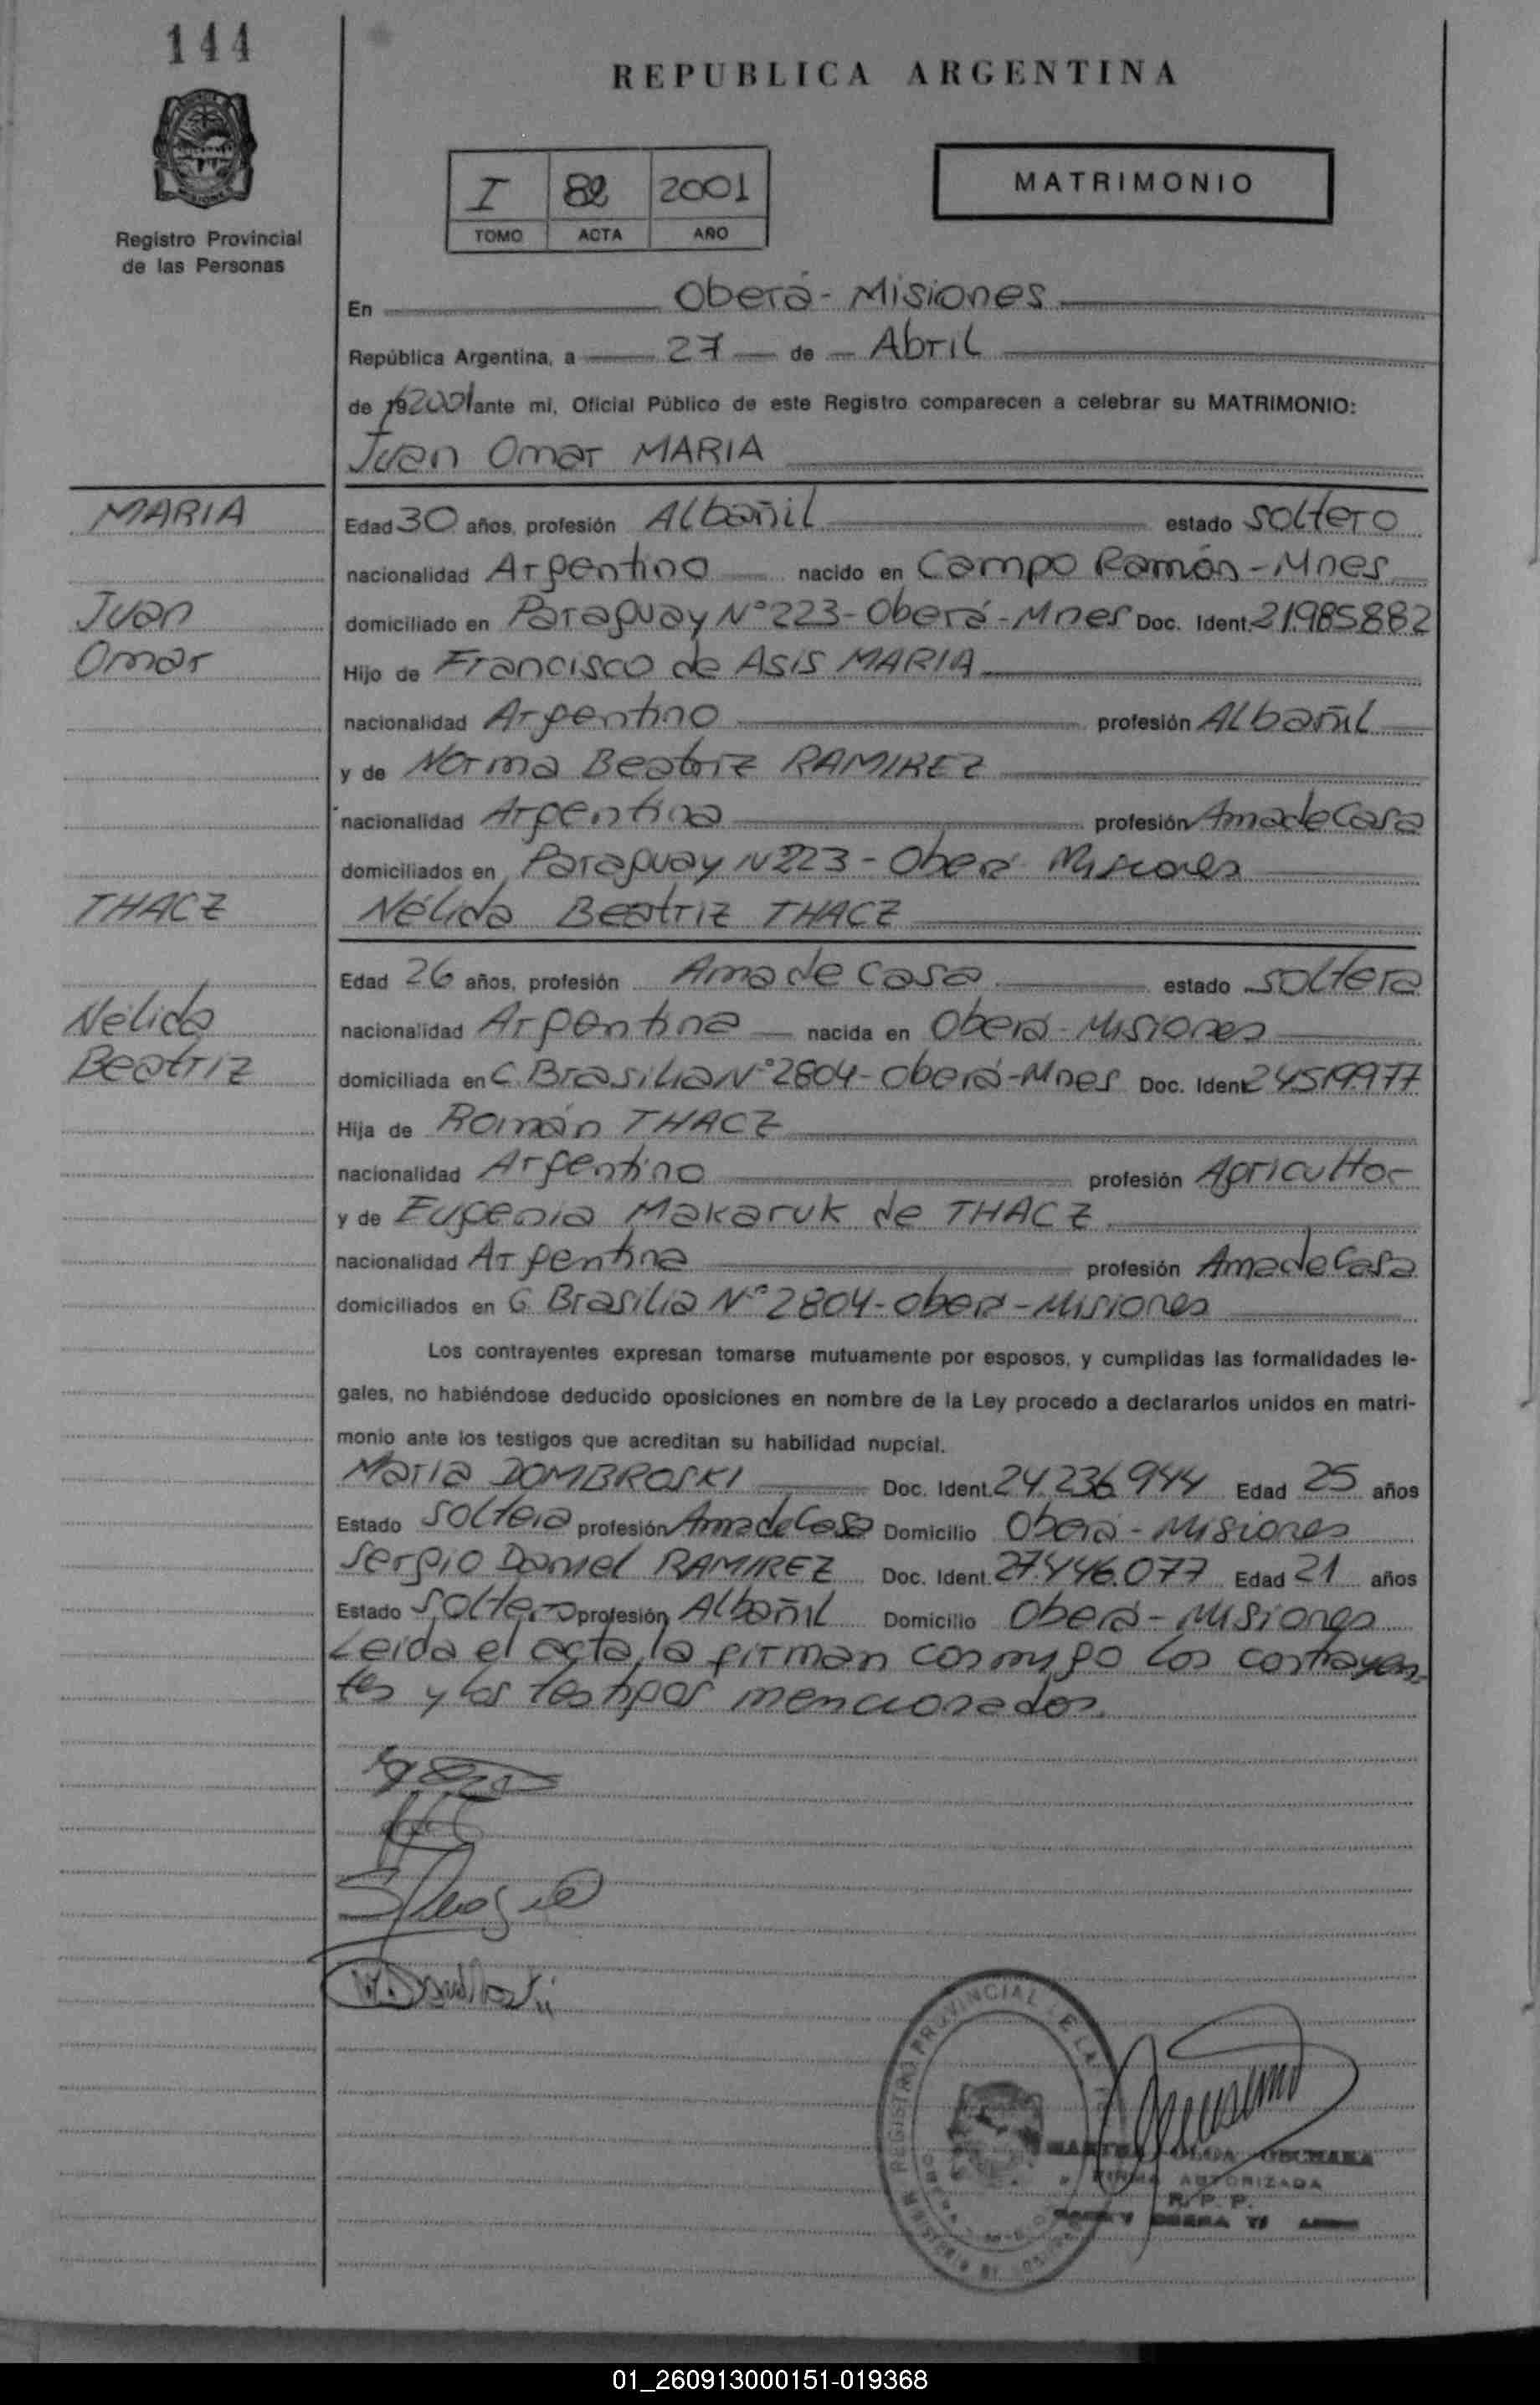 144
REPUBLICA ARGENTINA
I 82 2001
TOMO ACTA AÑO
MATRIMONIO
Registro Provincial
de las Personas
En Oberá - Misiones
República Argentina, a 27 de Abril
de 192001 ante mi, Oficial Público de este Registro comparecen a celebrar su MATRIMONIO:
Juan Omar MARIA
MARIA
Edad 30 años, profesión Albañil estado soltero
nacionalidad Argentino nacido en Campo Ramón - Mnes
Juan
domiciliado en Paraguay Nº 223 - Oberá - Mnes Doc. Ident. 21.985.882
Omar
Hijo de Francisco de Asis MARIA
nacionalidad Argentino profesión Albañil
y de Norma Beatriz RAMIREZ
nacionalidad Argentina profesión Ama de Casa
domiciliados en Paraguay Nº 223 - Oberá Misiones
THACZ
Nélida Beatriz THACZ
Edad 26 años, profesión Ama de Casa estado soltera
Nélida
nacionalidad Argentina nacida en Oberá - Misiones
Beatriz
domiciliada en C. Brasilia Nº 2804 - Oberá - Mnes Doc. Ident. 24519977
Hija de Román THACZ
nacionalidad Argentino profesión Agricultor
y de Eugenia Makaruk de THACZ
nacionalidad Argentina profesión Ama de Casa
domiciliados en C. Brasilia Nº 2804 - Oberá - Misiones
Los contrayentes expresan tomarse mutuamente por esposos, y cumplidas las formalidades le-
gales, no habiéndose deducido oposiciones en nombre de la Ley procedo a declararlos unidos en matri-
monio ante los testigos que acreditan su habilidad nupcial.
María DOMBROSKI Doc. Ident. 24.236.944 Edad 25 años
Estado soltera profesión Ama de Casa Domicilio Oberá - Misiones
Sergio Daniel RAMIREZ Doc. Ident. 27.446.077 Edad 21 años
Estado soltero profesión Albañil Domicilio Oberá - Misiones
Leida el acta, la firman conmigo los contrayen-
tes y los testigos mencionados.
REGISTRO PROVINCIAL DE LA
OLGA
FIRMA AUTORIZADA
R. P. P.
01_260913000151-019368